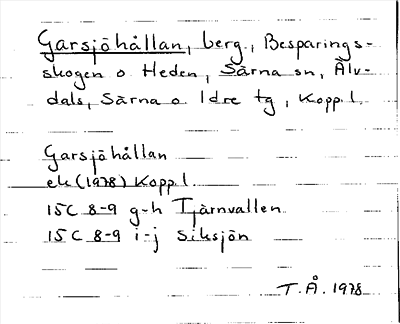 Garsjöhållan, berg., Besparings-
skogen o. Heden, Särna sn, Älv-
dals, Särna o. Idre tg, Kopp. l.
Garsjöhållan
ek (1978) Kopp. l.
15C 8-9 g-h Tjärnvallen
15C 8-9 i-j Siksjön
T.Å. 1978